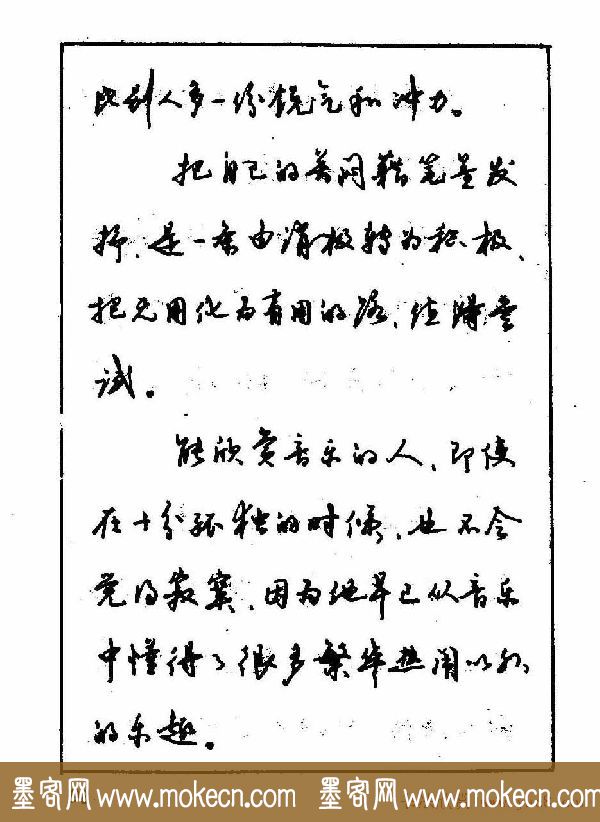 比别人多一份锐气和冲力。
把自己的苦闷藉笔墨发
抒，是一条由消极转为积极、
把无用化为有用的路，值得尝
试。
能欣赏音乐的人，即使
在十分孤独的时候，也不会
觉得寂寞，因为他早已从音乐
中懂得了很多繁华热闹以外
的乐趣。
墨客网 www.mokecn.com 墨客网 www.mokecn.com